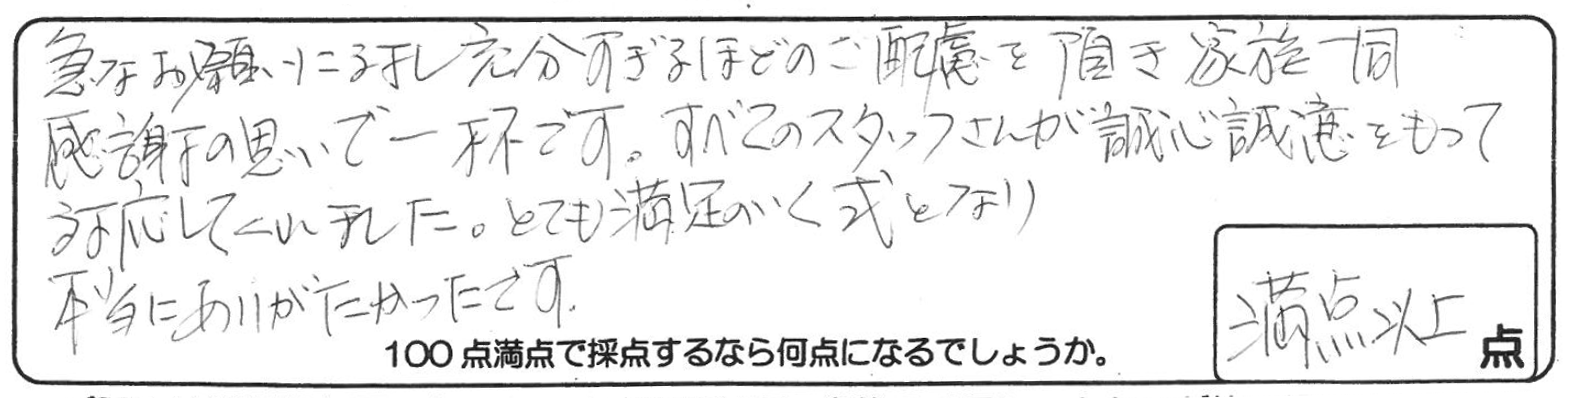 急なお願いに対し充分すぎるほどのご配慮を頂き家族一同
感謝の思いで一杯です。すべてのスタッフさんが誠心誠意をもって
対応してくれました。とても満足のいく式となり
本当にありがたかったです。
満点以上点
100点満点で採点するなら何点になるでしょうか。